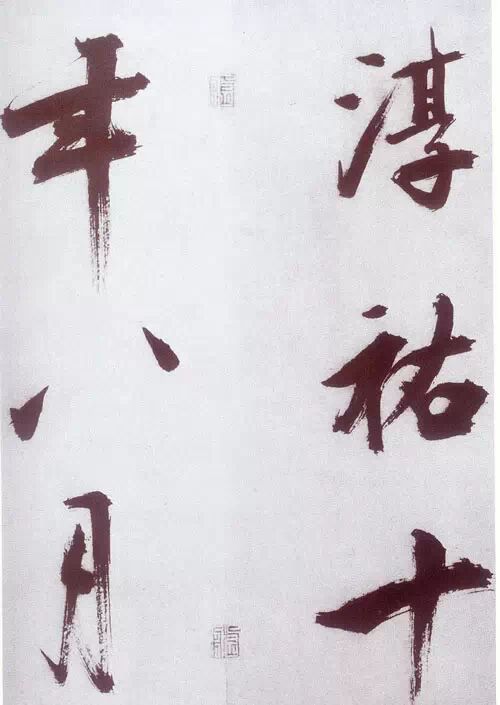 淳祐十
年八月